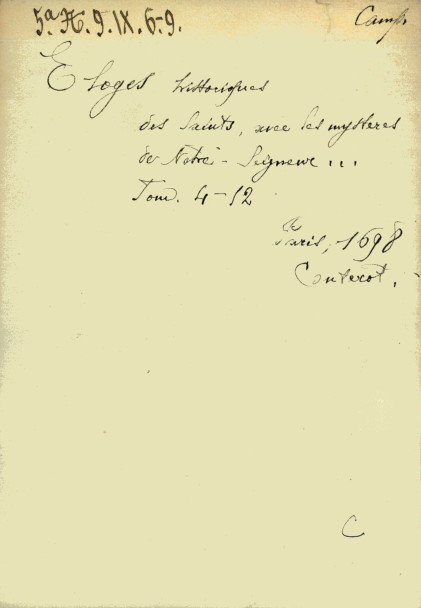 5.ª H. 9. IX. 6-9.
Camp.
Eloges historiques
des Saints, avec les mysteres
de Notre-Seigneur ...
Tom. 4-12
Paris, 1698
Couterot.
C